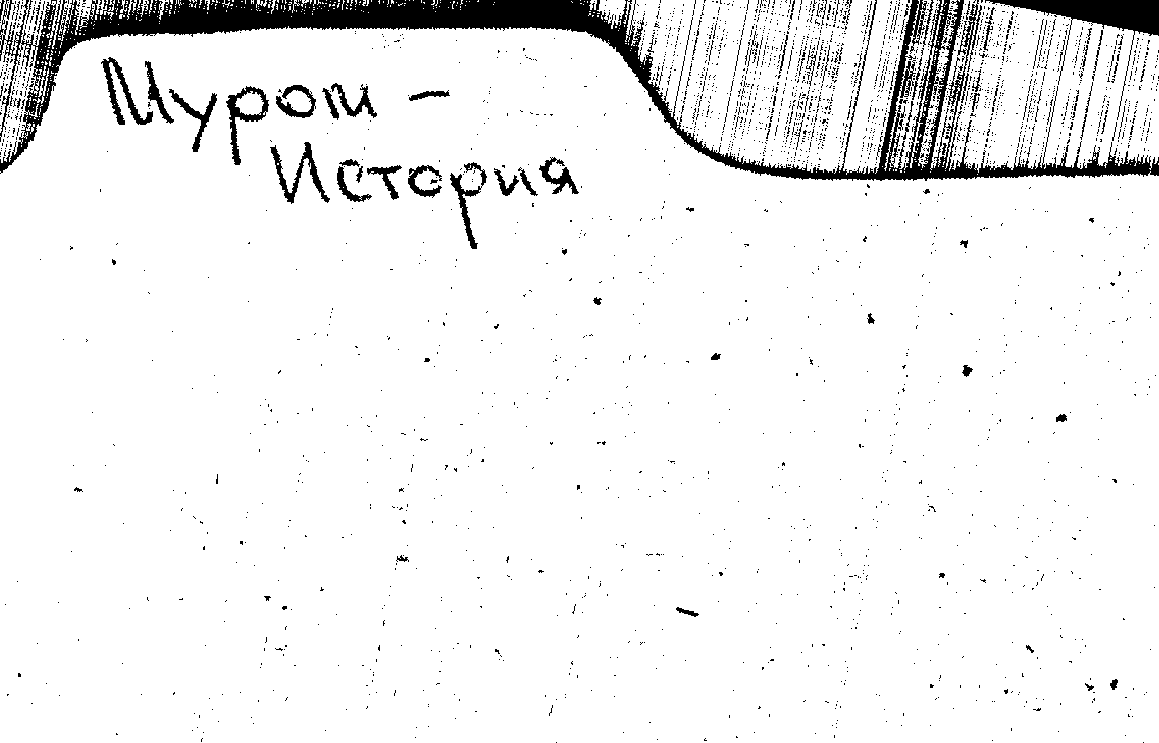 Муром -
История